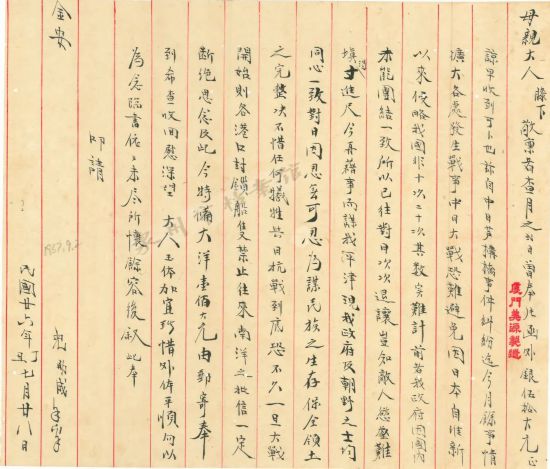 母親大人 膝下 敬稟者查月之 日曾奉此函外銀伍拾大元正
諒早收到可卜也茲自中日蘆構橋事件糾紛迄今月餘事情
擴大各處發生戰事中日大戰恐難避免因日本自維新
以來侵略我國非十次二十次其數實難計前者我政府因國內
未能團結一致所以已往對日次次退讓豈知敵人慾壑難
填寸進尺今再藉事而謀我平津現我政府及朝野之士均
同心一致對日因忍無可忍為謀民族之生存保全領土
之完整决不惜任何犧牲與日抗戰到底恐不久一旦大戰
開始則各港口封鎖船隻禁止往來南洋之批信一定
断绝思念及此今特備大洋壹佰大元由郵寄奉
到希查收回慰深望 大人玉体加宜珍惜外体平順可以
為念臨書依依未尽所懷餘容後叙此奉
叩請
金安
民國廿六年丁丑七月廿八日
1937.9.2
厦門美源製造